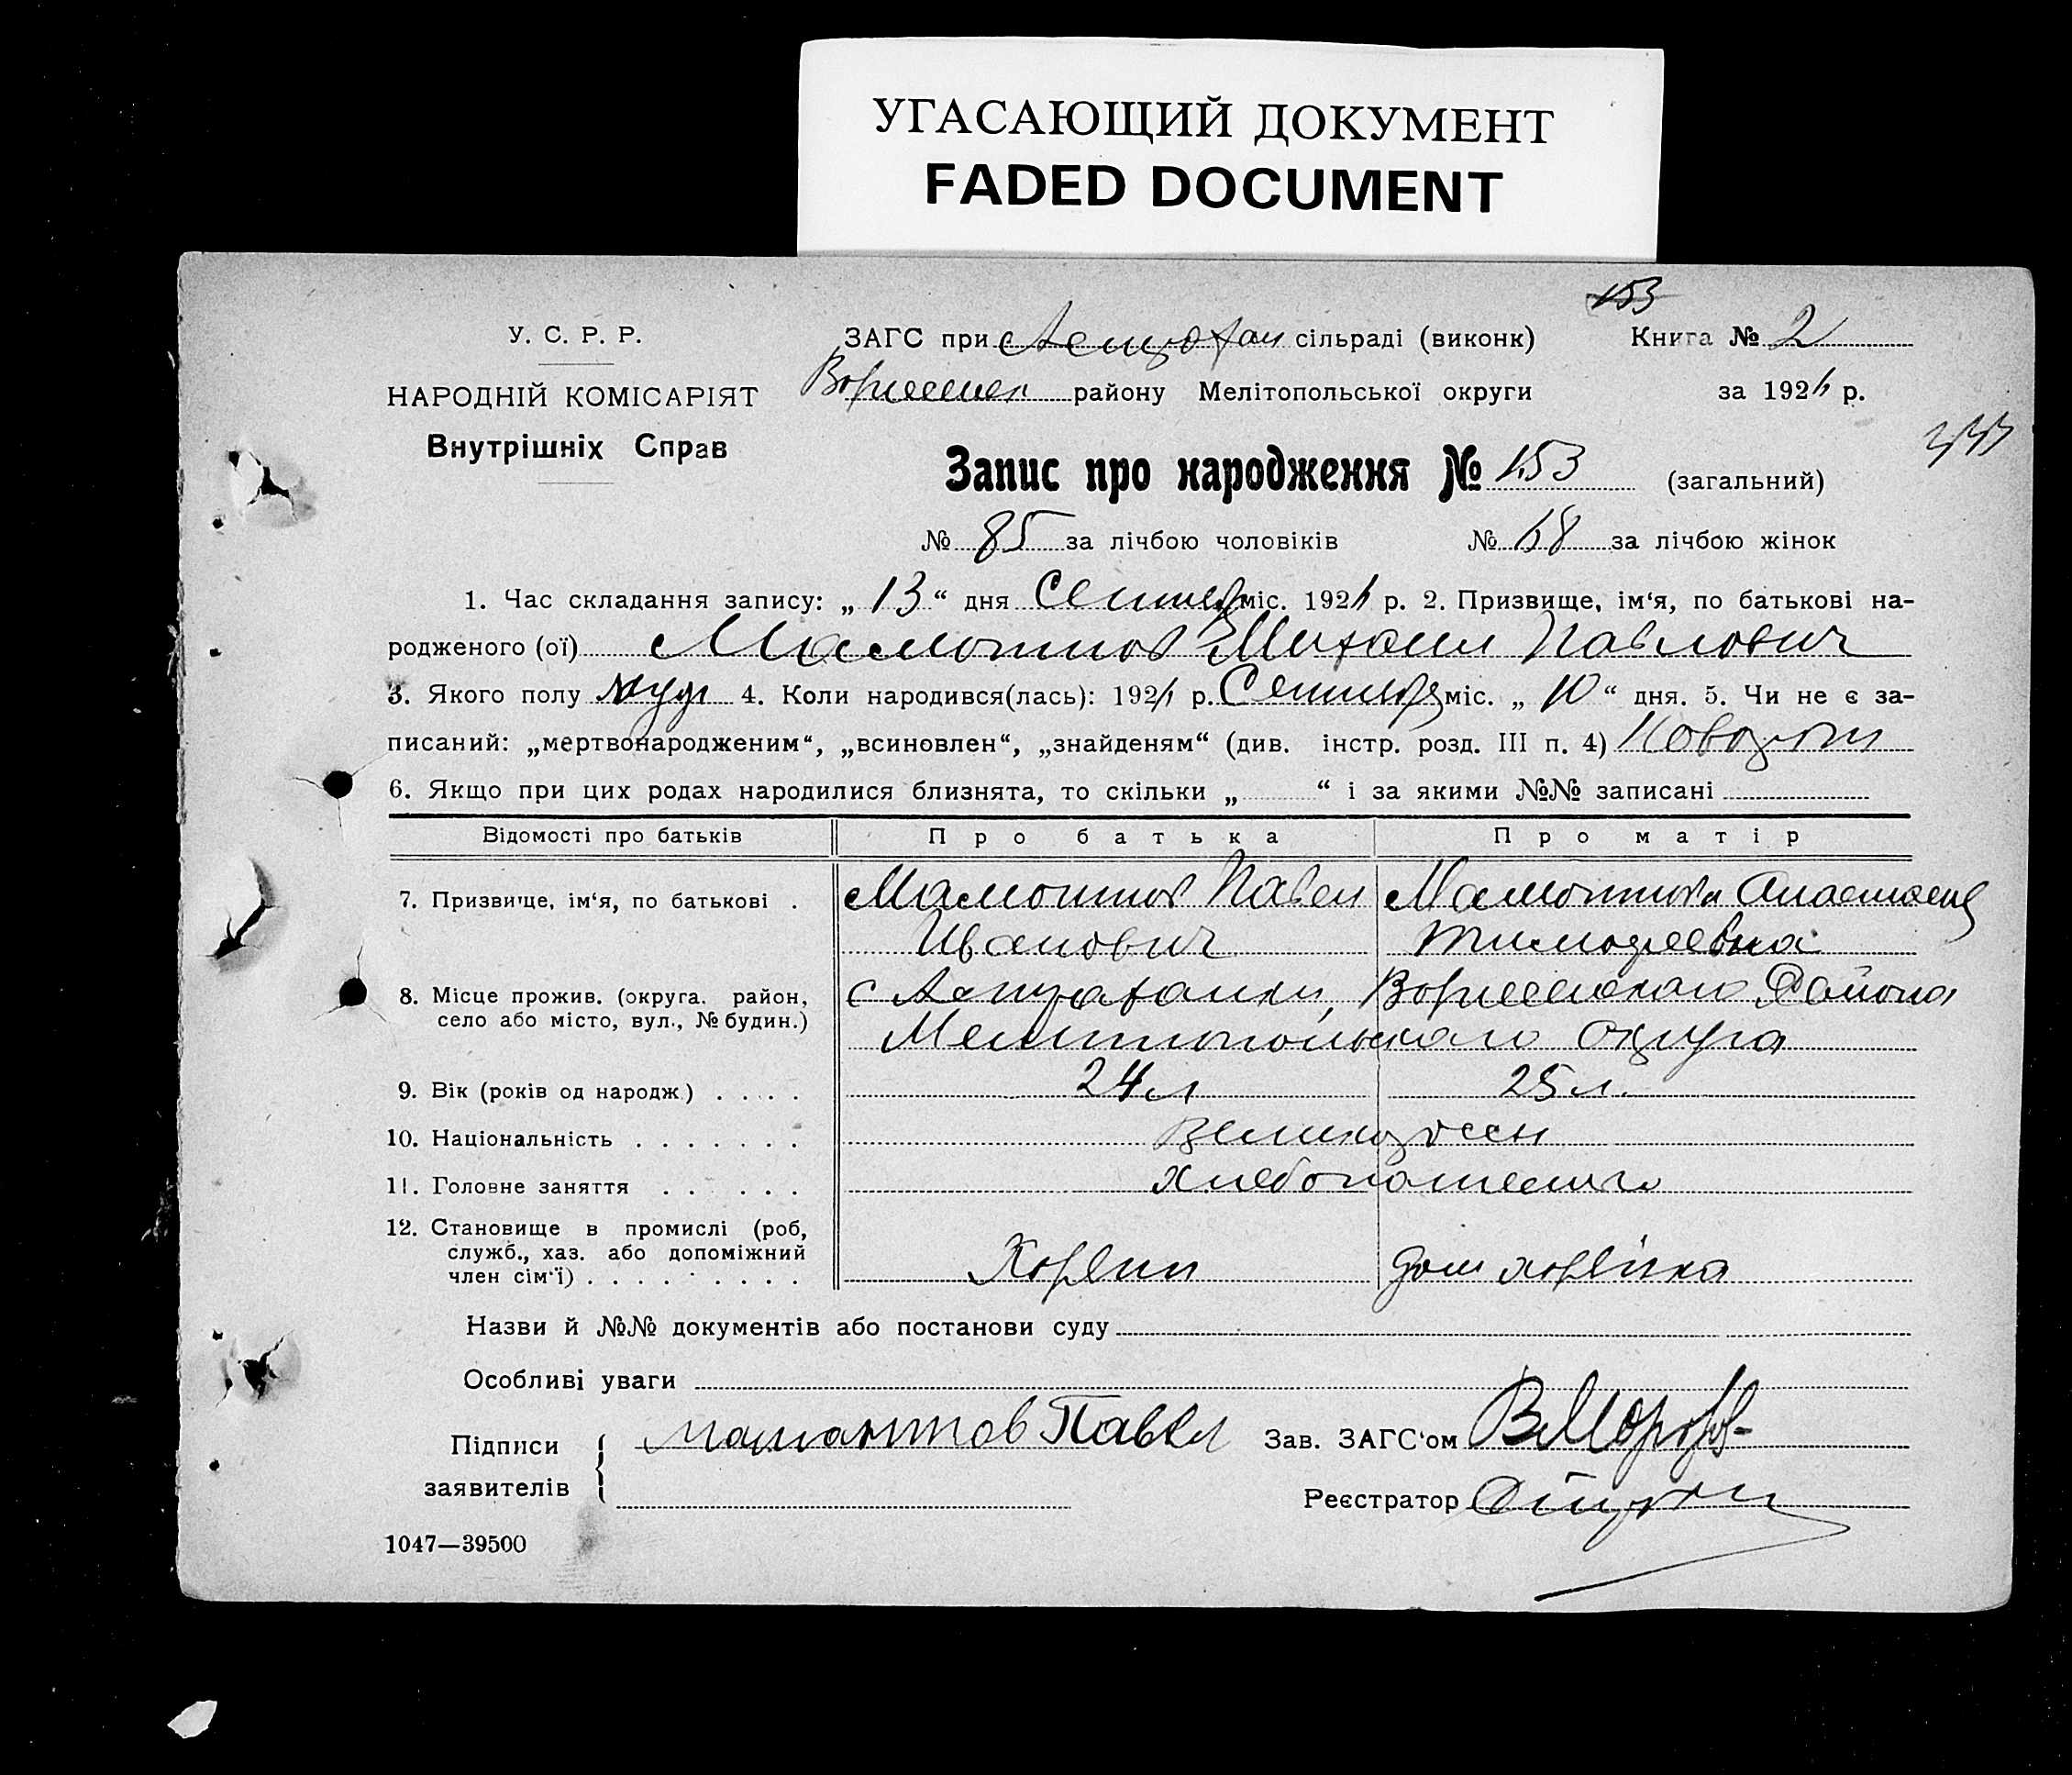 УГАСАЮЩИЙ ДОКУМЕНТ
FADED DOCUMENT
153
У. С. Р. Р.
ЗАГС при Астрахан сільраді (виконк)
Книга № 2
НАРОДНІЙ КОМІСАРІЯТ
району Мелітопольської округи
за 192 р.
Внутрішніх Справ
Запис про народження № 153 (загальний)
№ 85 за лічбою чоловіків
№ 68 за лічбою жінок
1. Час складання запису: „ 13 “ дня Сентяб міс. 192 р. 2. Призвище, ім‘я, по батькові на-
родженого (ої) Мамонтов Михаил Павлович
3. Якого полу муж 4. Коли народився(лась): 192 р. Сентября міс. „ 10 “ дня. 5. Чи не є за-
писаний: „мертвонародженим“, „всиновлен“, „знайденям“ (див. інстр. розд. III п. 4)
6. Якщо при цих родах народилися близнята, то скільки „ “ і за якими №№ записані
Відомості про батьків
Про батька
Про матір
7. Призвище, ім‘я, по батькові .
Мамонтов Павел
Иванович
Мамонтова Анастасия
Тимофеевна
8. Місце прожив. (округа. район,
село або місто, вул., № будин.)
с Астраханки, Района
Мелитопольского округа
9. Вік (років од народж.) . . . .
24 л
25 л.
10. Національність . . . . . . .
великоросси
11. Головне заняття . . . . . .
хлебопашество
12. Становище в промислі (роб,
служб., хаз. або допоміжний
член сім‘ї) . . . . . . . . . .
Хозяин
дом хозяйка
Назви й №№ документів або постанови суду
Особливі уваги
Підписи
заявителів
мамонтов Павел
Зав. ЗАГС‘ом
Реєстратор
1047—39500